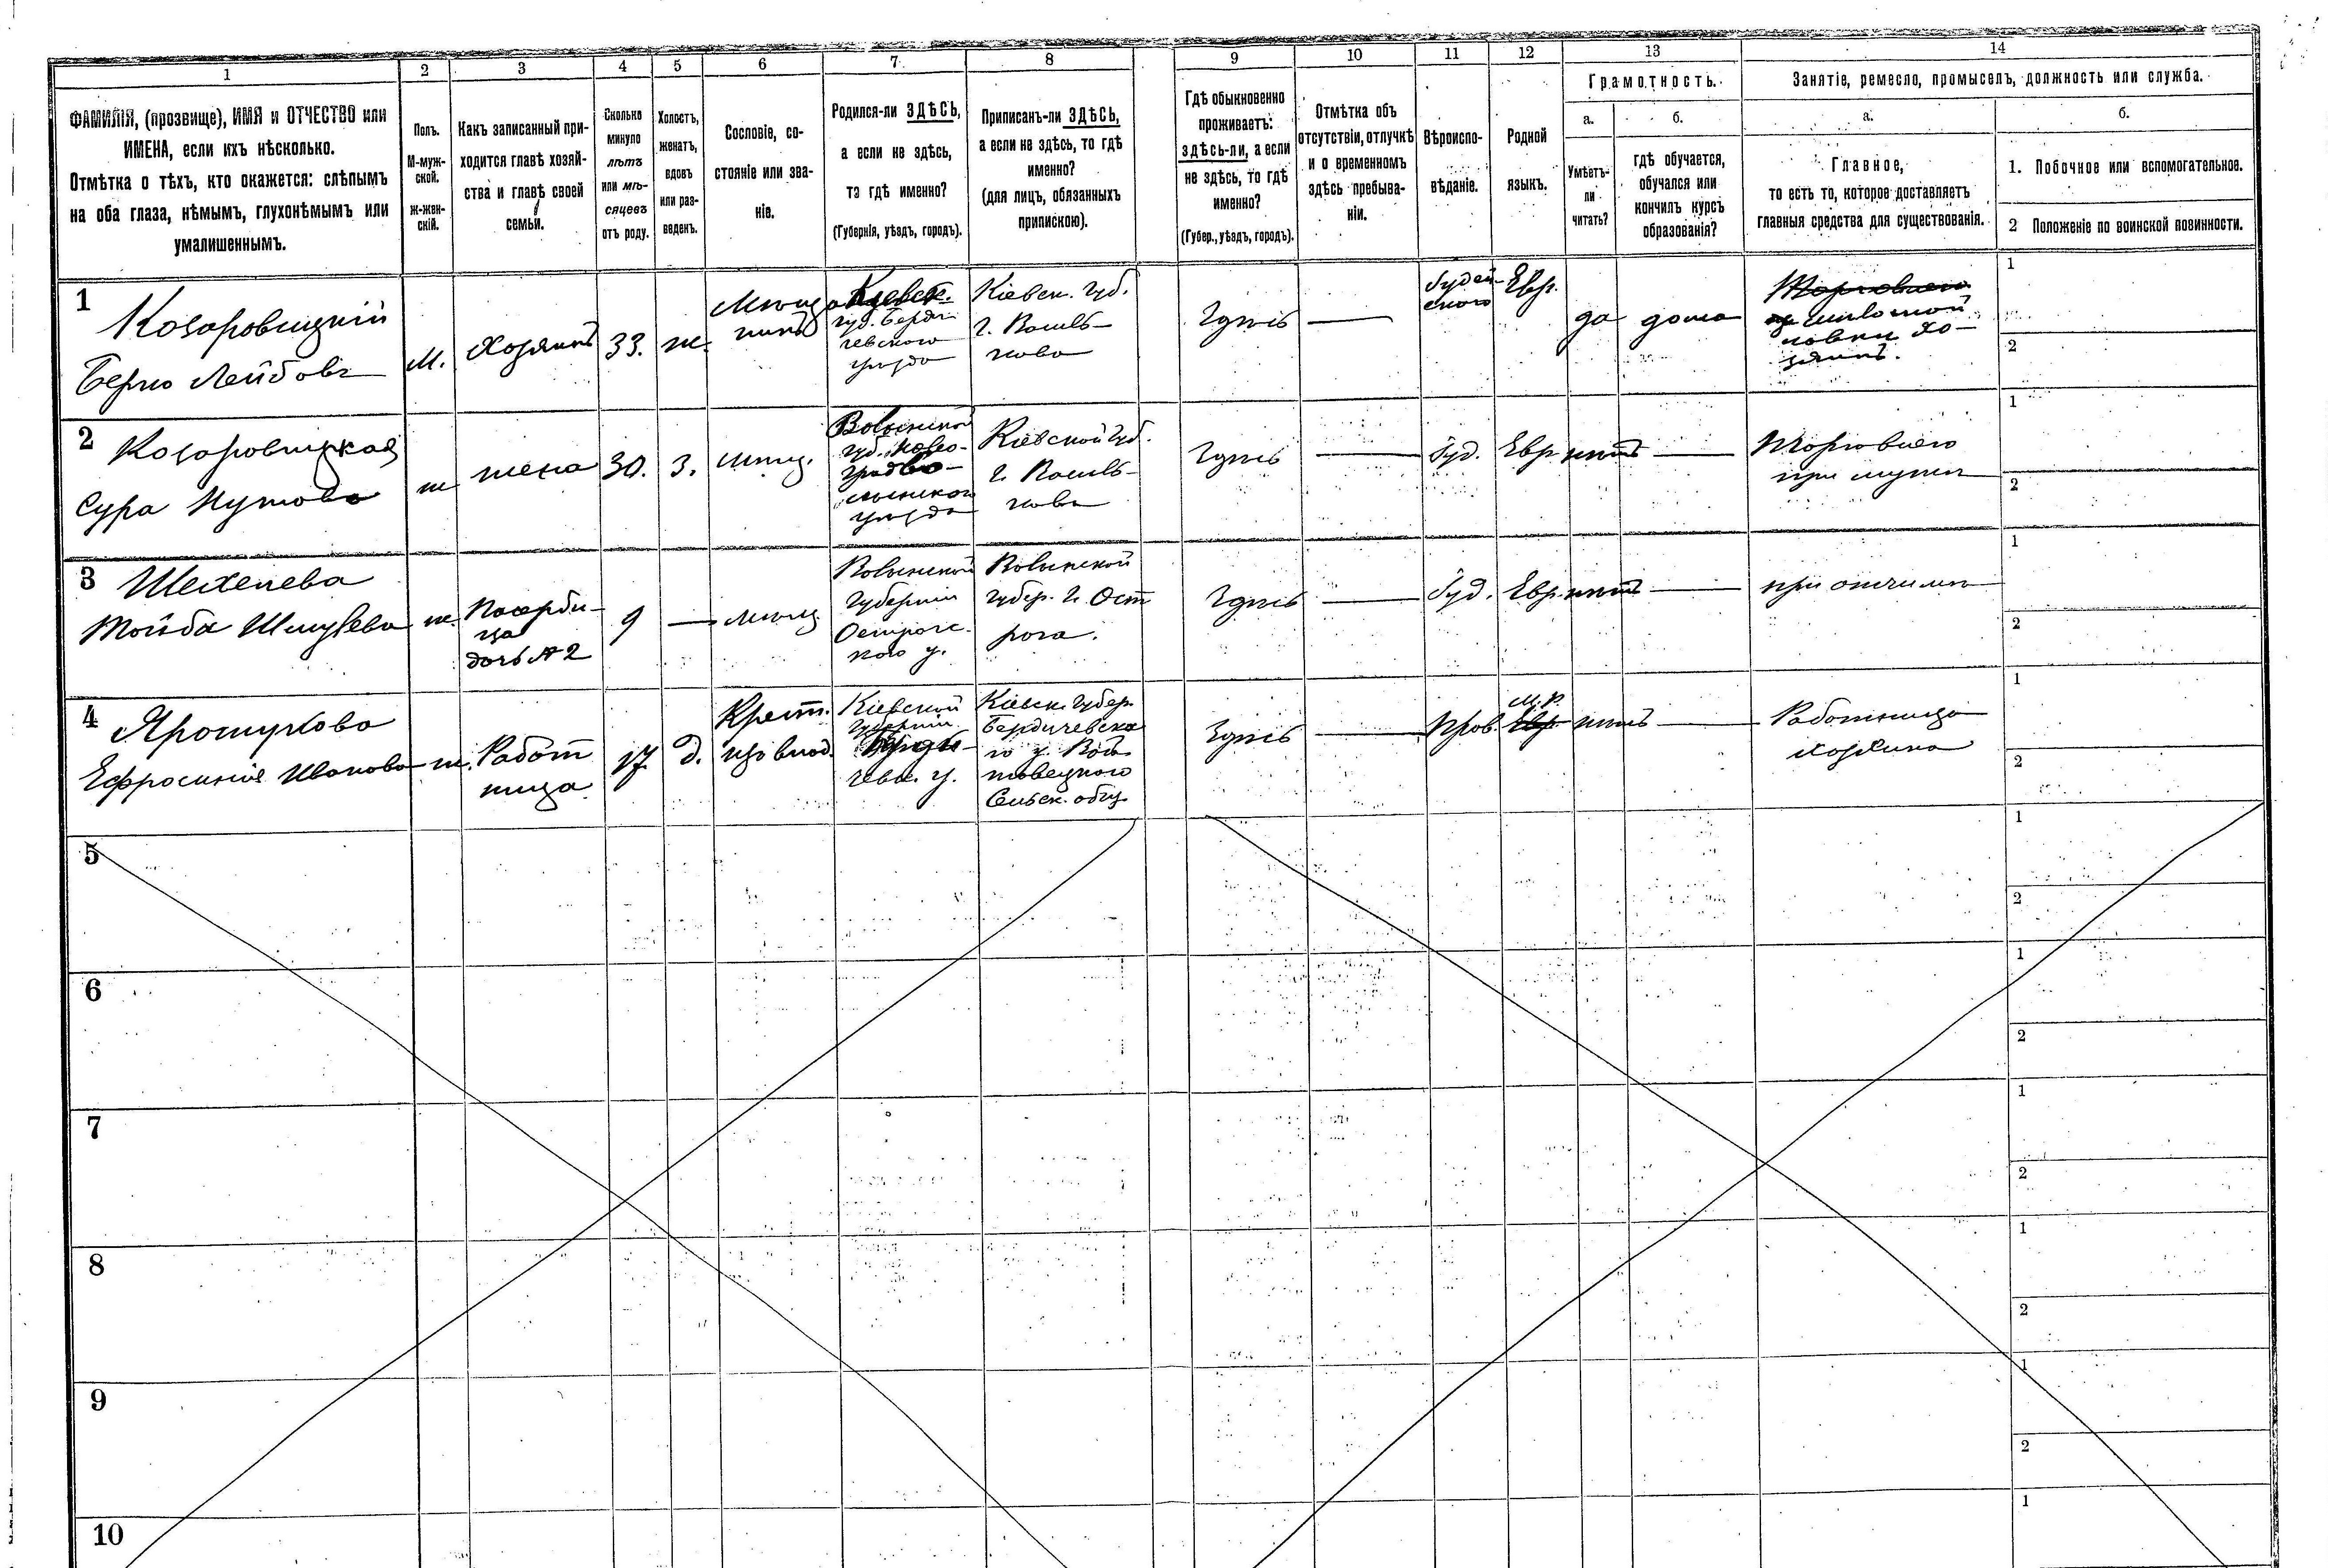 1 2 3 4 5 6 7 8 9 10 11 12 13 14
ФАМИЛІЯ, (прозвище), ИМЯ и ОТЧЕСТВО или
ИМЕНА, если ихъ нѣсколько.
Отмѣтка о тѣхъ, кто окажется: слѣпымъ
на оба глаза, нѣмымъ, глухонѣмымъ или
умалишеннымъ.
Полъ.
М-муж-
ской.
ж-жен-
скій.
Какъ записанный при-
ходится главѣ хозяй-
ства и главѣ своей
семьи.
Сколько
минуло
лѣтъ
или мѣ-
сяцевъ
отъ роду.
Холостъ,
женатъ,
вдовъ
или раз-
веденъ.
Сословіе, со-
стояніе или зва-
ніе.
Родился-ли ЗДѢСЬ,
а если не здѣсь,
то гдѣ именно?
(Губернія, уѣздъ, городъ).
Приписанъ-ли ЗДѢСЬ,
а если не здѣсь, то гдѣ
именно?
(для лицъ, обязанныхъ
припискою).
Гдѣ обыкновенно
проживаетъ:
здѣсь-ли, а если
не здѣсь, то гдѣ
именно?
(Губер., уѣздъ, городъ).
Отмѣтка объ
отсутствіи, отлучкѣ
и о временномъ
здѣсь пребыва-
ніи.
Вѣроиспо-
вѣданіе.
Родной
языкъ.
Грамотность.
а.
Умѣетъ-
ли
читать?
б.
гдѣ обучается,
обучался или
кончилъ курсъ
образованія?
Занятіе, ремесло, промыселъ, должность или служба.
а.
Главное,
то есть то, которое доставляетъ
главныя средства для существованія.
б.
1. Побочное или вспомогательное.
2 Положеніе по воинской повинности.
1
Козаровицкій
Берко Лейбовъ
М.
Хозяинъ
33.
ж.
Мѣща
нинъ
Кіевск.
губ. Берди
чевского
уѣзда
Кіевск. Губ.
г. Василь-
кова
Здѣсь
Іудей-
ского
Евр.
да
дома
Торговаго
хо-
зяинъ.
1
2
2
Козаровицкая
Сура
ж
жена
30.
З.
мѣщ.
Волынской
губ. Ново-
градво-
лынского
уѣзда
Кіевской Губ.
г. Василь-
кова
Здѣсь
Іуд.
Евр
нѣтъ
Торговаго
при мужѣ
1
2
3
Тойба
ж.
Падчери-
ца
дочь № 2
9
мѣщ
Волынской
Губерніи
Острогс-
кого у.
Волынской
губер. г. Ост
рога.
Здѣсь
Іуд.
Евр
нѣтъ
при отчимѣ
1
2
4
Ефросинія Иванова
ж.
Работ
ница
17
д.
Крест.
Кіевской
Губерніи
Берди-
чевск. у.
Кіевск. Губер.
Бердичевска
го у.
Сельск. общ.
Здѣсь
Прав.
М.Р.
Евр
нѣтъ
Работница
хозяина
1
2
5
1
2
6
1
2
7
1
2
8
1
2
9
1
2
10
1